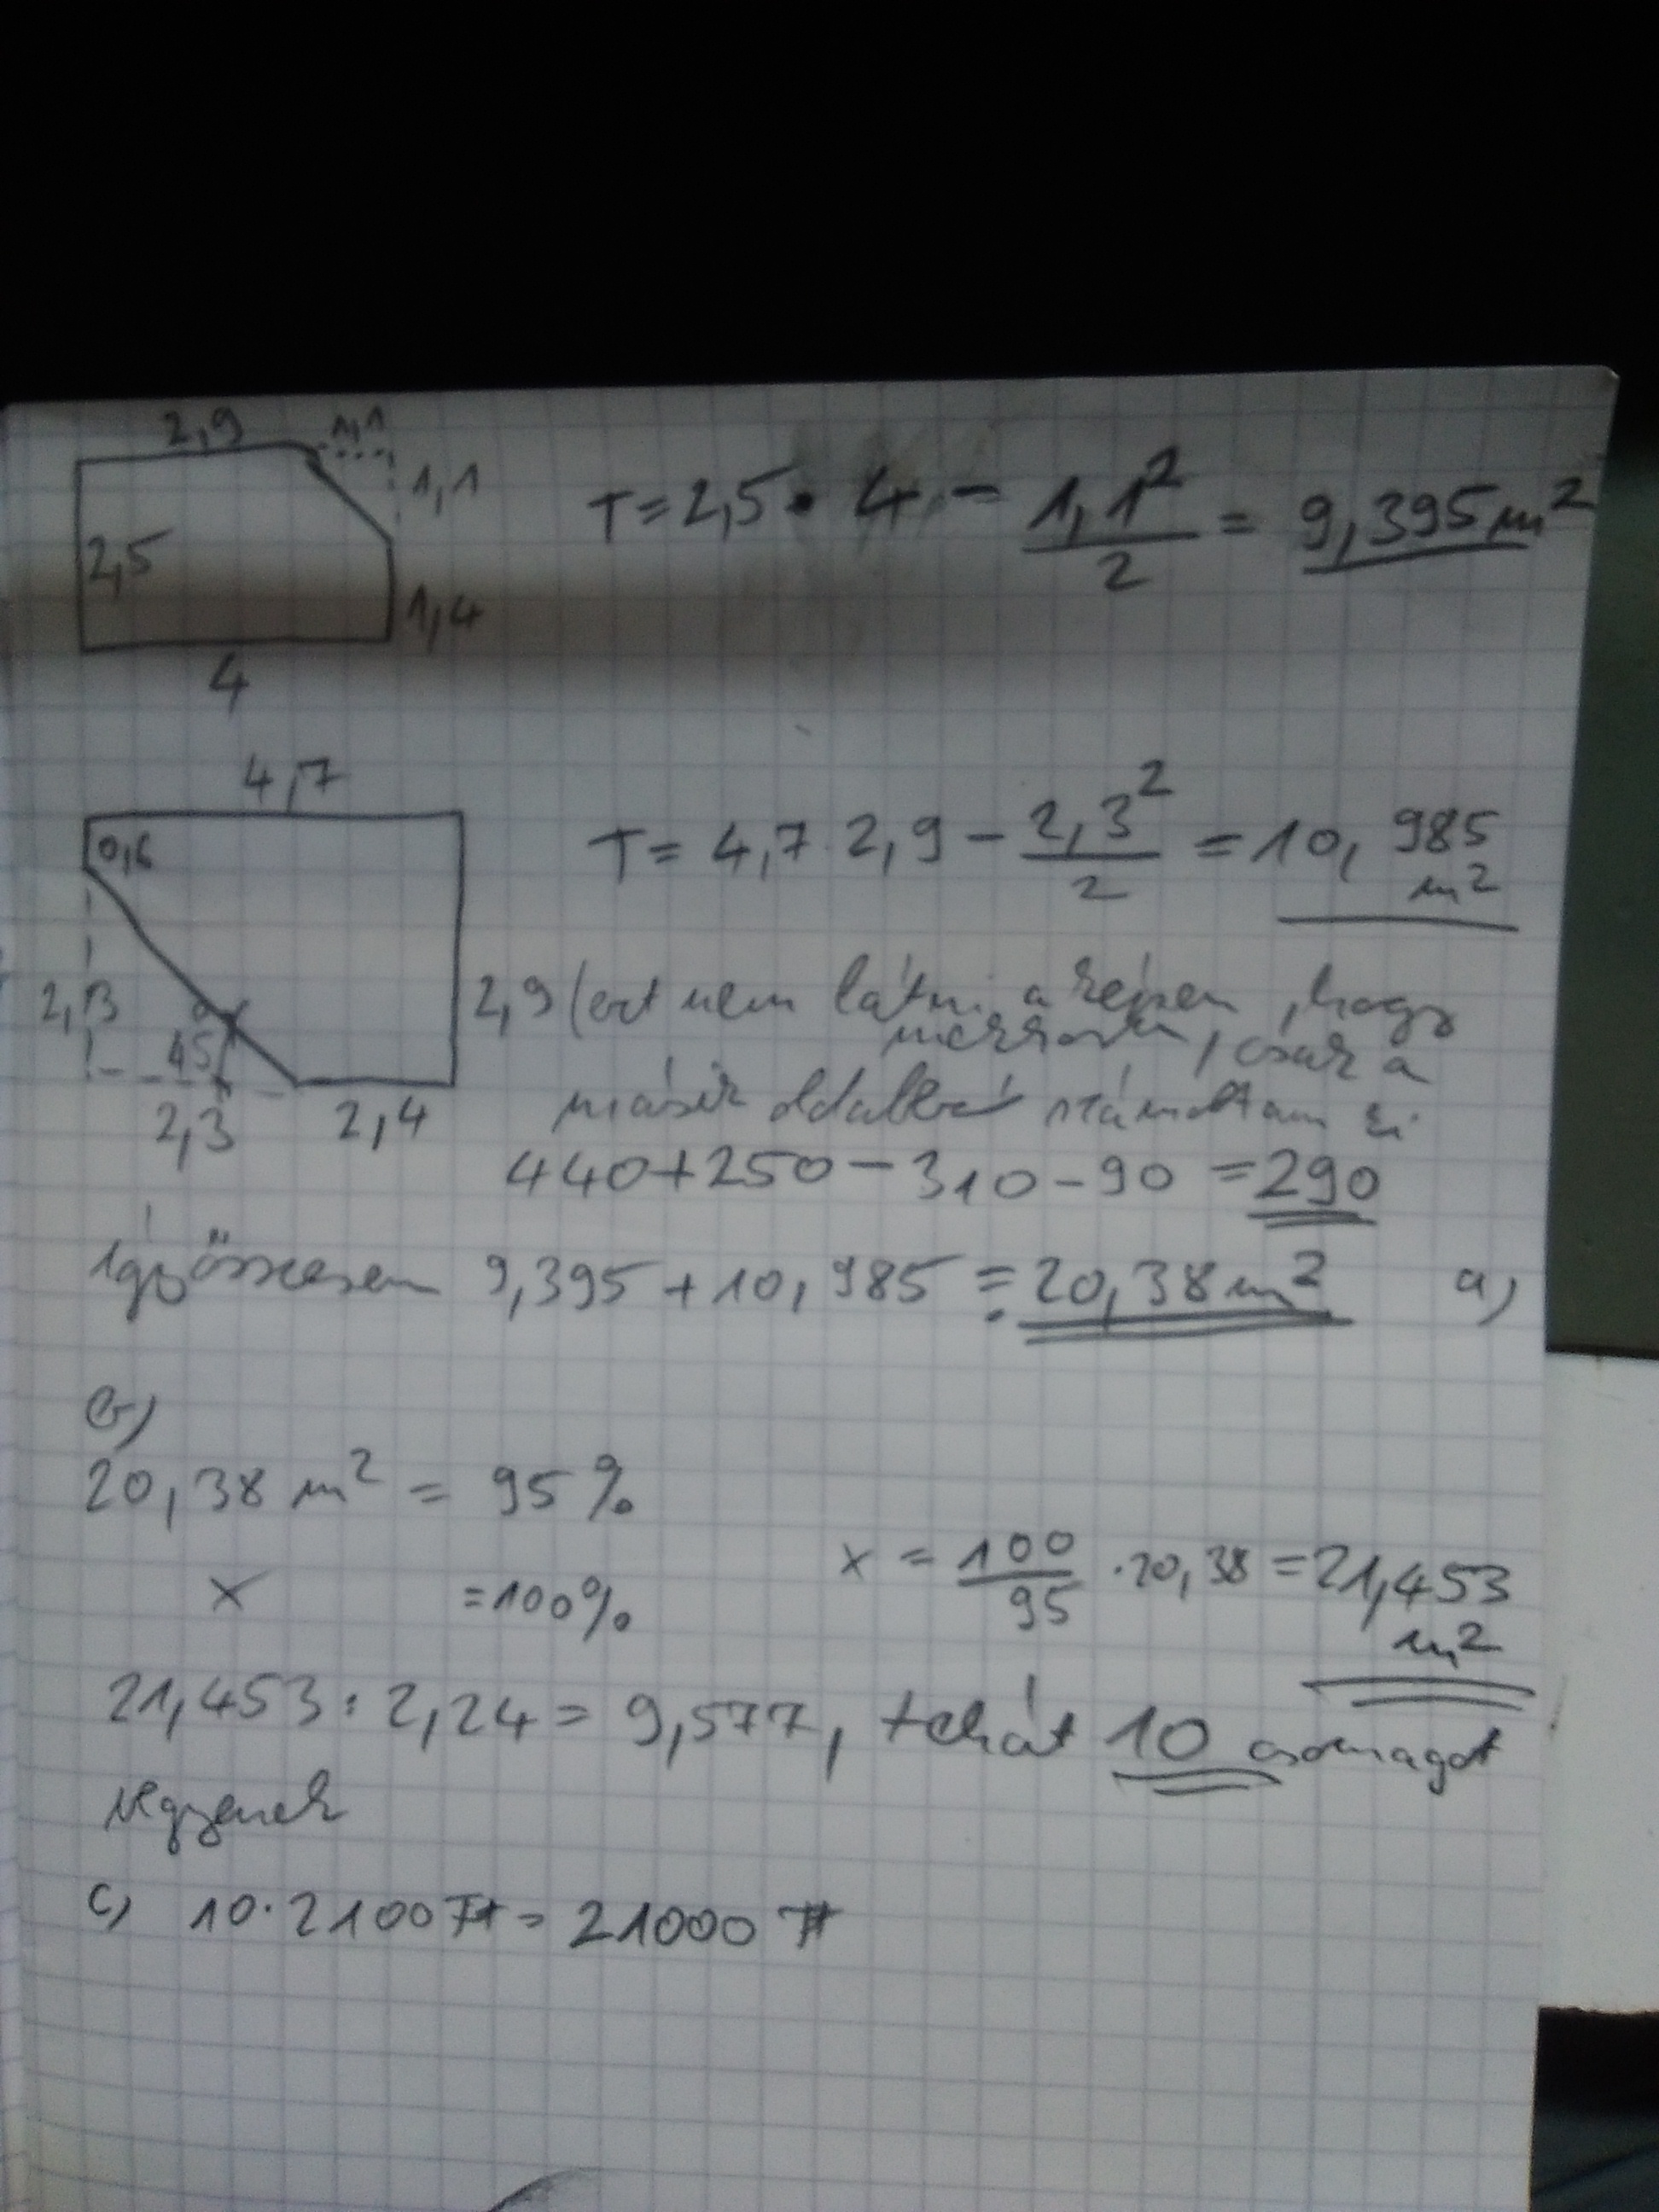 2,9 1,1
1,1
2,5
1,4
4
T = 2,5 • 4 - 1,1²/2 = 9,395 m²
4,7
0,6
T = 4,7 · 2,9 - 2,3²/2 = 10,985 m²
2,3
45
2,3 2,4
2,9 (ezt nem látni a képen, hogy
mekkora, csak a
másik oldalból számoltam ki
440+250-310-90 = 290
Így összesen 9,395 + 10,985 = 20,38 m² a)
b)
20,38 m² = 95%
x = 100%
x = 100/95 · 20,38 = 21,453 m²
21,453 : 2,24 = 9,577, tehát 10 csomagot
vegyenek
c) 10 · 2100 Ft = 21000 Ft